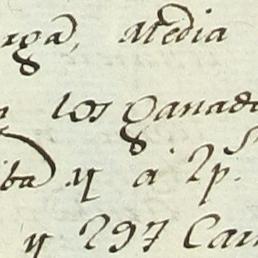 arga, Media
y los ganad
iba y a 2ps.
y 297 Car